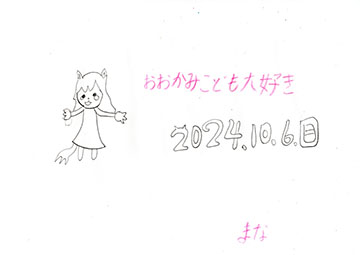 おおかみこども大好き
2024.10.6.日
まな